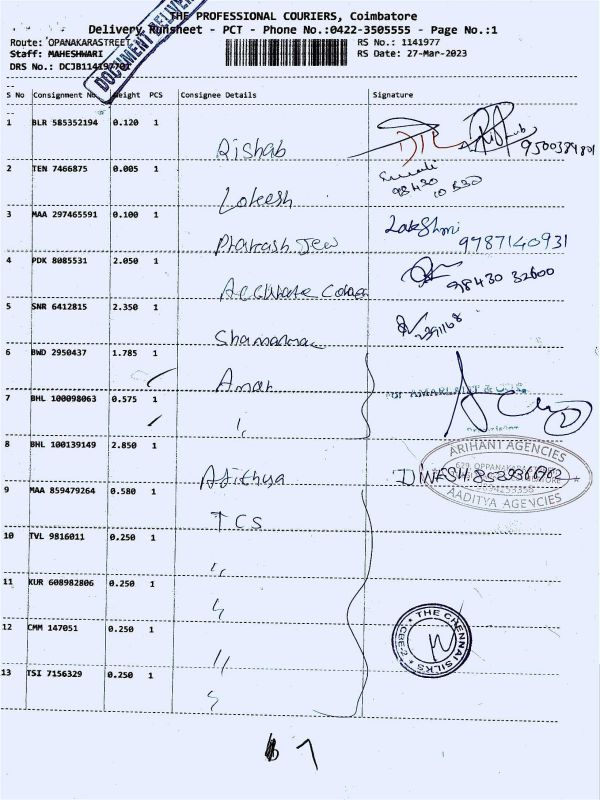 THE PROFESSIONAL COURIERS, Coimbatore
Delivery Runsheet - PCT - Phone No.:0422-3505555 - Page No.:1
Route: OPANAKARASTREET RS No.: 1141977
Staff: MAHESHWARI RS Date: 27-Mar-2023
DRS No.: DCJB1141977701
DOCUMENT DELIVERY
S No Consignment No Weight PCS Consignee Details Signature
1 BLR 585352194 0.120 1 Rishab
2 TEN 7466875 0.005 1 Lokesh 98430
3 MAA 297465591 0.100 1 Prakash Jew Lakshmi 9787140931
4 PDK 8085531 2.050 1 Accurate 98430 32600
5 SNR 6412815 2.350 1
6 BWD 2950437 1.785 1 Amar
7 BHL 100098063 0.575 1 "
8 BHL 100139149 2.850 1 Adithya DINESH
ARIHANT AGENCIES
AADITYA AGENCIES
9 MAA 859479264 0.580 1 TCS
10 TVL 9816011 0.250 1 "
11 KUR 608982806 0.250 1 "
12 CMM 147051 0.250 1 "
THE CHENNAI SILKS
CBE-2
13 TSI 7156329 0.250 1 "
7